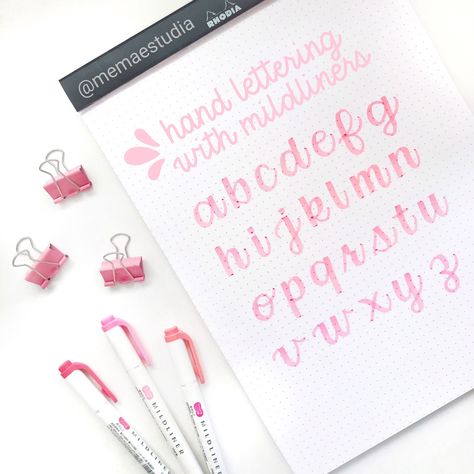 @memaestudia
RHODIA
hand lettering
with mildliners
abcdefg
hijklmn
opqrstu
vwxyz
MILDLINER
MILDLINER
MILDLINER